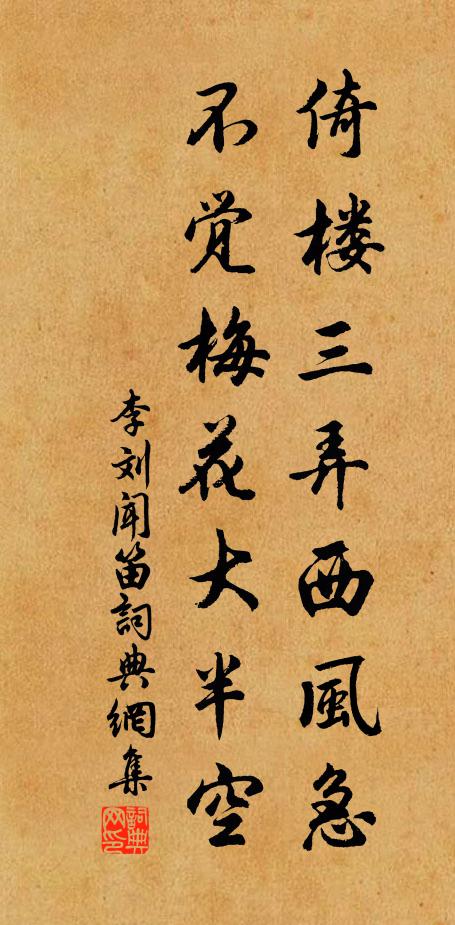 倚楼三弄西風急
不觉梅花大半空
李刘闻笛詞典網集
詞典网印